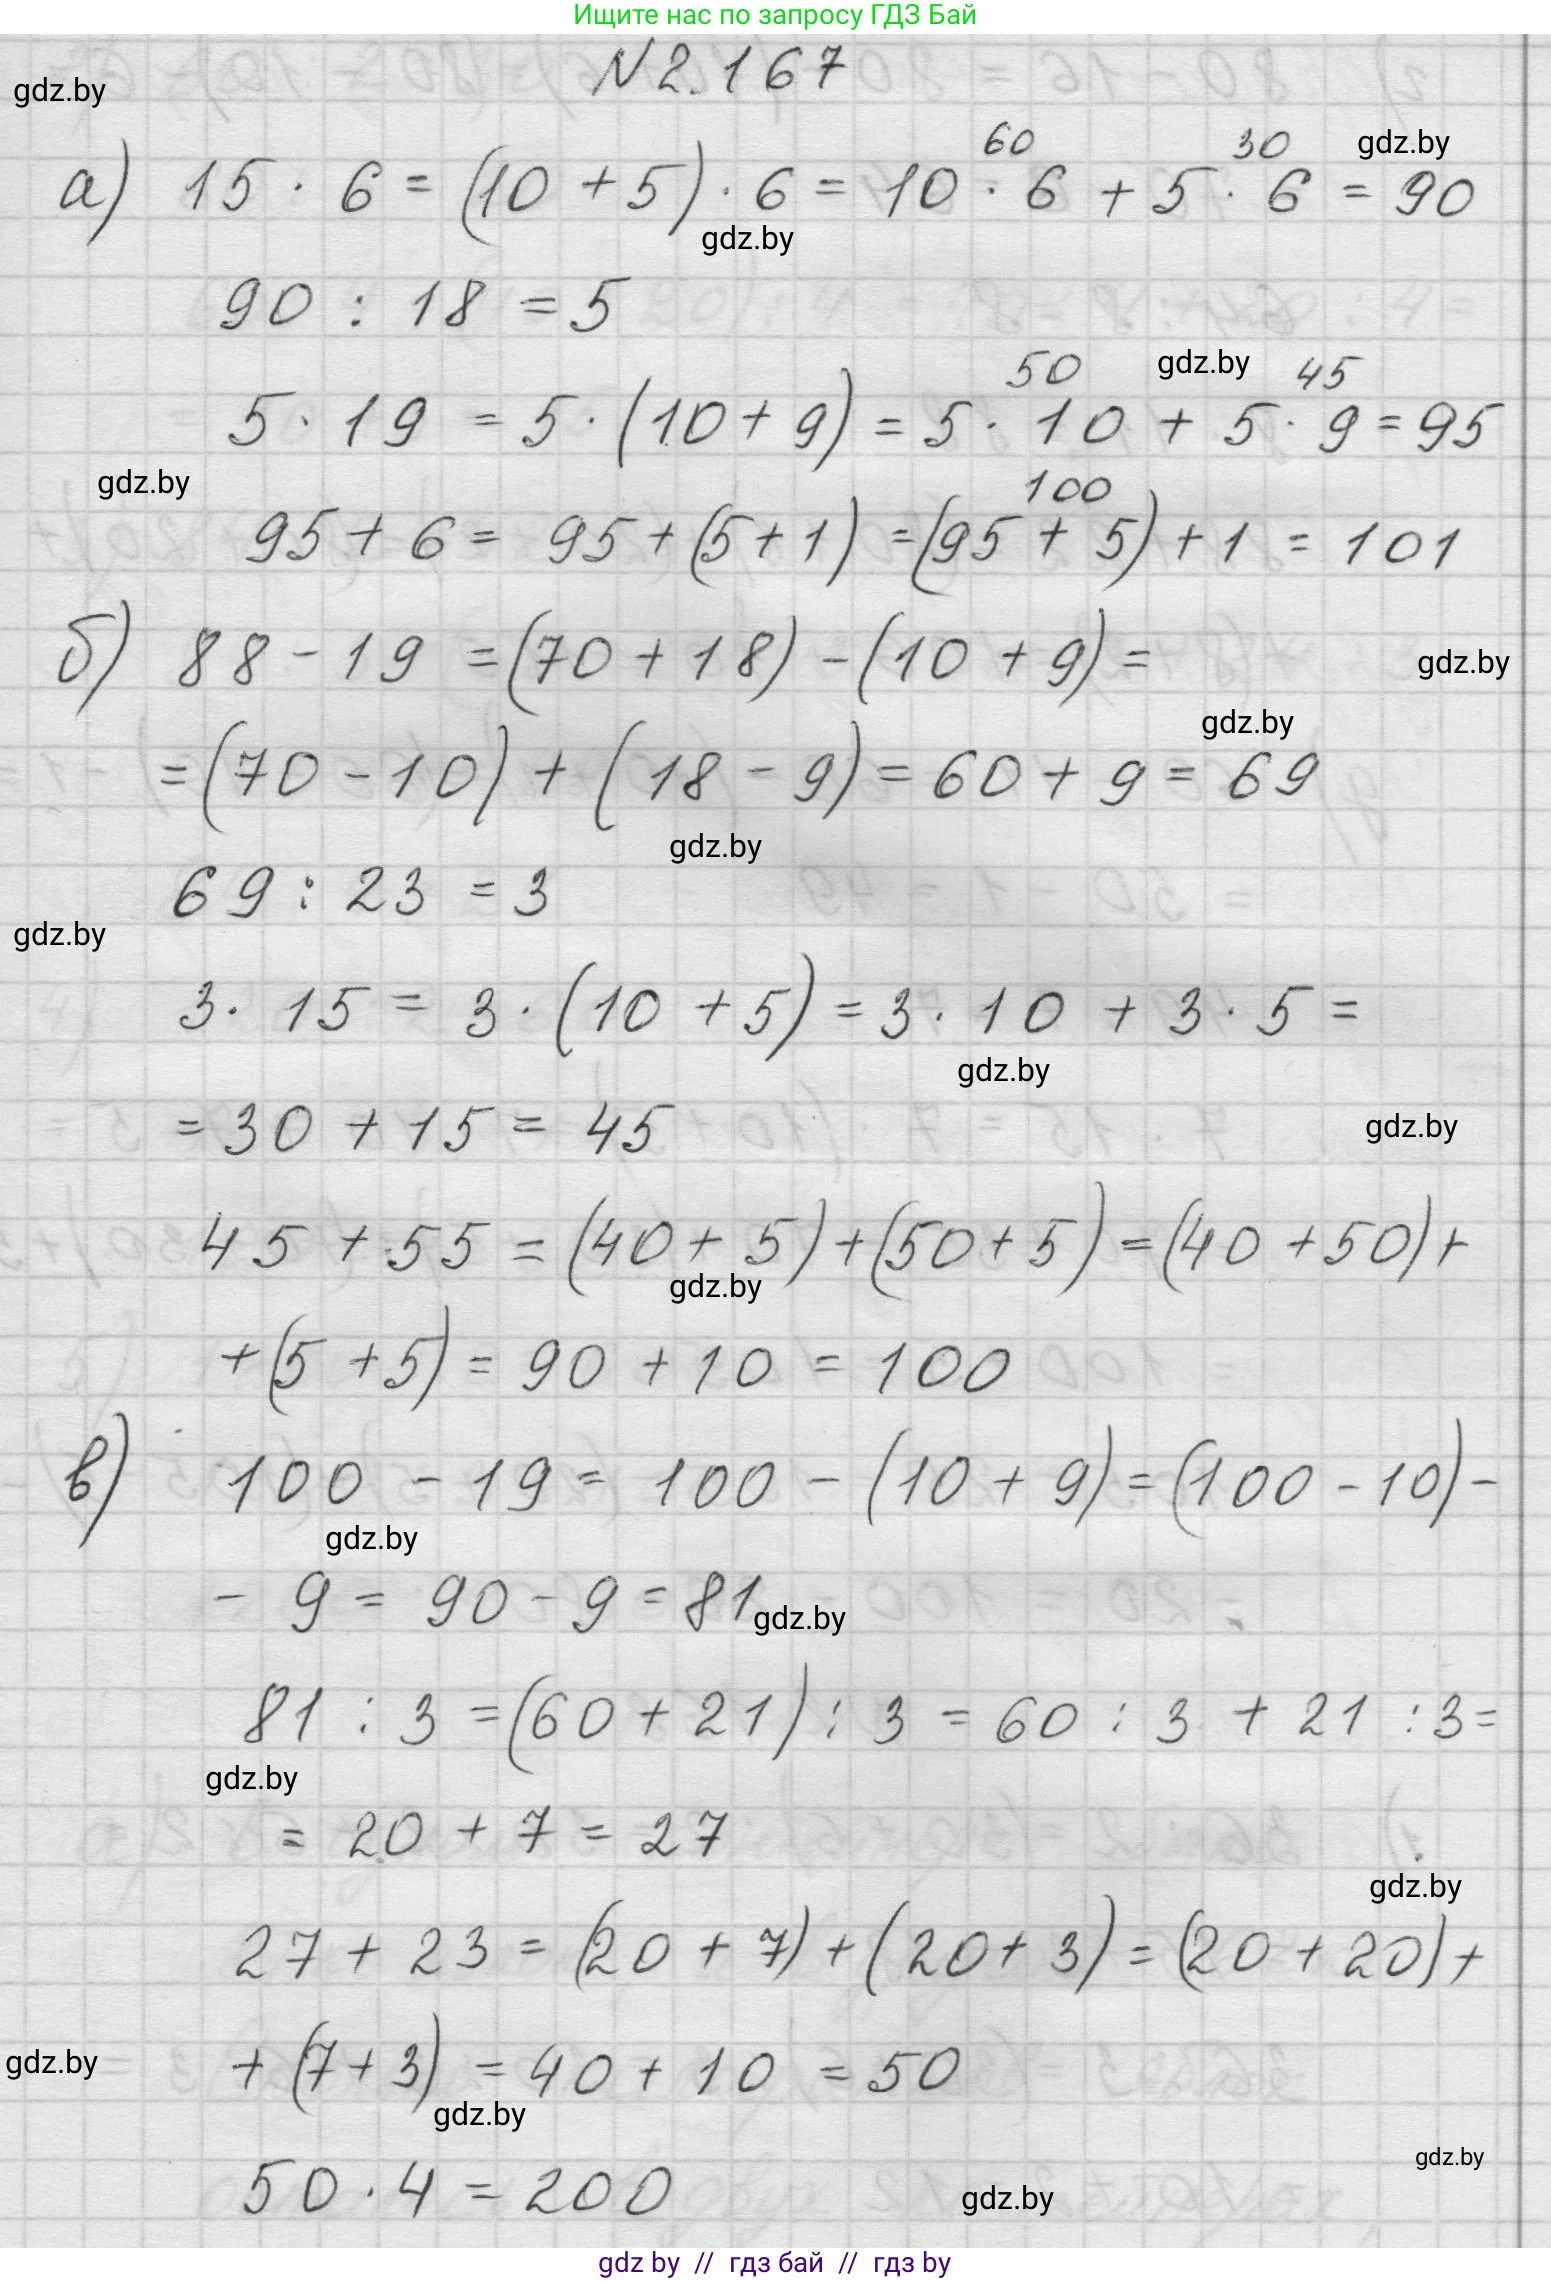 Ищите нас по запросу ГДЗ Бай
N 2.167
gdz.by
60 30 gdz.by
а) 15 · 6 = (10 + 5) · 6 = 10 · 6 + 5 · 6 = 90
gdz.by
90 : 18 = 5
50 gdz.by 45
5 · 19 = 5 · (10 + 9) = 5 · 10 + 5 · 9 = 95
gdz.by 100
95 + 6 = 95 + (5 + 1) = (95 + 5) + 1 = 101
б) 88 - 19 = (70 + 18) - (10 + 9) =
gdz.by
gdz.by
= (70 - 10) + (18 - 9) = 60 + 9 = 69
gdz.by
69 : 23 = 3
gdz.by
3 · 15 = 3 · (10 + 5) = 3 · 10 + 3 · 5 =
gdz.by
= 30 + 15 = 45
gdz.by
45 + 55 = (40 + 5) + (50 + 5) = (40 + 50) +
gdz.by
+ (5 + 5) = 90 + 10 = 100
в) 100 - 19 = 100 - (10 + 9) = (100 - 10) -
gdz.by
- 9 = 90 - 9 = 81
gdz.by
81 : 3 = (60 + 21) : 3 = 60 : 3 + 21 : 3 =
gdz.by
= 20 + 7 = 27
gdz.by
27 + 23 = (20 + 7) + (20 + 3) = (20 + 20) +
gdz.by
+ (7 + 3) = 40 + 10 = 50
gdz.by
gdz.by
50 · 4 = 200
gdz.by
gdz by // гдз бай // гдз by